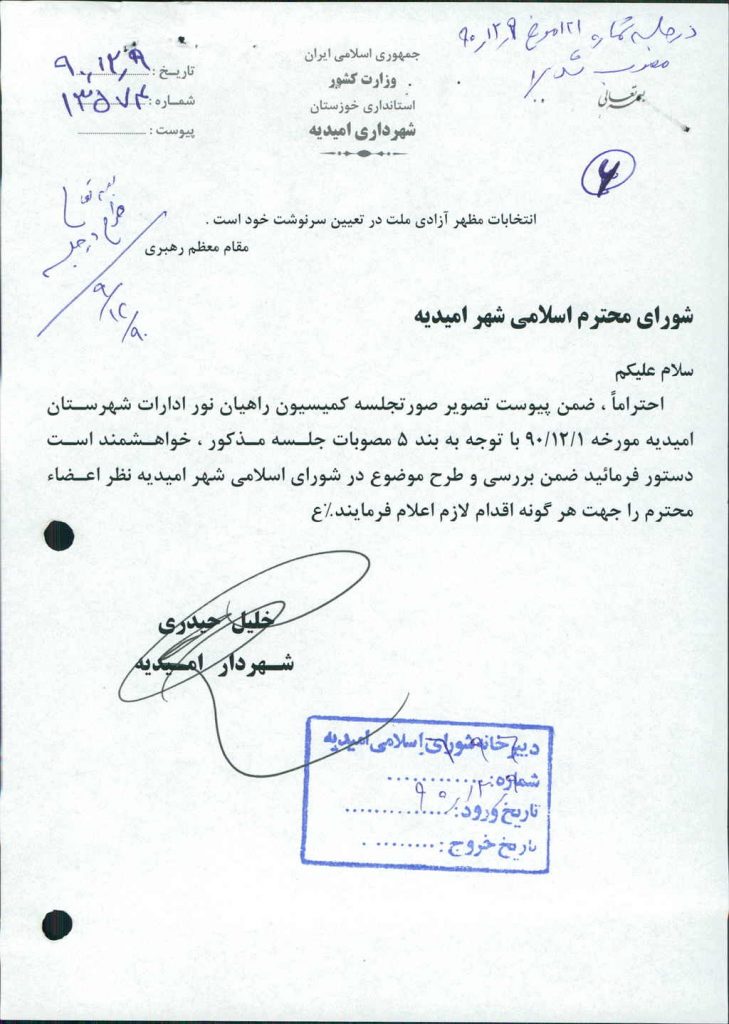 در جلسه شماره ۱۲۱ مورخ ۹۰/۱۲/۹
مصوب شد
بسمه تعالی
جمهوری اسلامی ایران
وزارت کشور
استانداری خوزستان
شهرداری امیدیه
تاریخ : ۹۰/۱۲/۹
شماره : ۱۳۵۷۴
پیوست :
۴
انتخابات مظهر آزادی ملت در تعیین سرنوشت خود است .
مقام معظم رهبری
طرح در جلسه
۹۰/۱۲/۹
شورای محترم اسلامی شهر امیدیه
سلام علیکم
احتراماً ، ضمن پیوست تصویر صورتجلسه کمیسیون راهیان نور ادارات شهرستان
امیدیه مورخه ۹۰/۱۲/۱ با توجه به بند ۵ مصوبات جلسه مذکور ، خواهشمند است
دستور فرمائید ضمن بررسی و طرح موضوع در شورای اسلامی شهر امیدیه نظر اعضاء
محترم را جهت هر گونه اقدام لازم اعلام فرمایند.٪ع
خلیل حیدری
شهردار امیدیه
دبیرخانه شورای اسلامی امیدیه
شماره:
تاریخ ورود: ۹۰/۱۲/۹
تاریخ خروج: